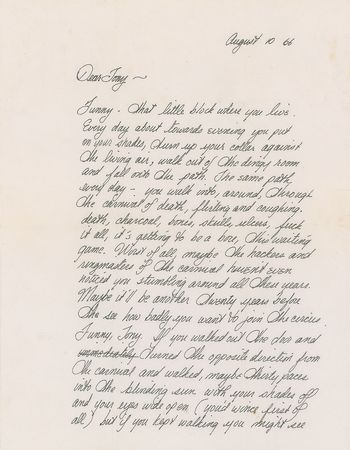 August 10 66
Dear Tony ~
Funny - that little block where you live.
Every day about towards evening you put
on your shades, turn up your collar against
the living air, walk out of the dingy room
and fall onto the path. The same path
every day - you walk into, around, through
the carnival of death, flirting and coughing.
death, charcoal, bones, skulls, ulcers, fuck
it all, it's getting to be a bore, this waiting
game. Worst of all, maybe the hackers and
ringmasters of the carnival haven't even
noticed you stumbling around all these years.
Maybe it'll be another twenty years before
the see how badly you want to join the circus.
Funny, Tony. If you walked out the door and
immediately turned the opposite direction from
the carnival and walked, maybe thirty paces
into the blinding sun with your shades off
and your eyes wide open (you'd wince first of
all) but if you kept walking you might see